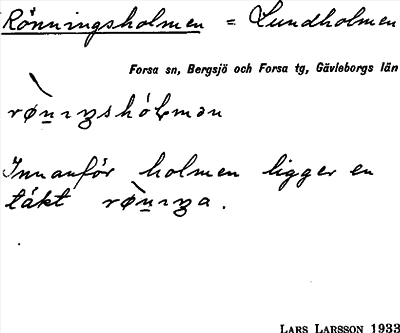 Rönningsholmen = Lundholmen
Forsa sn, Bergsjö och Forsa tg, Gävleborgs län
Innanför holmen ligger en
täkt
LARS LARSSON 1933